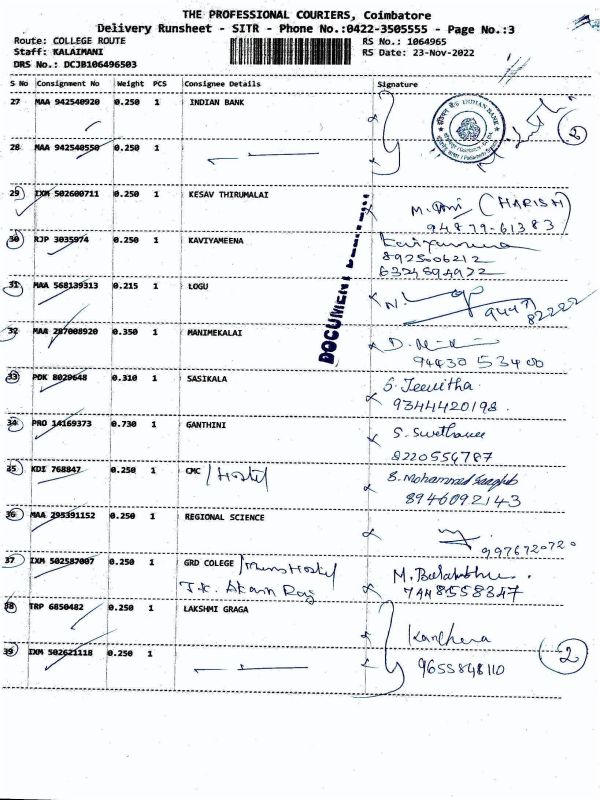 THE PROFESSIONAL COURIERS, Coimbatore
Delivery Runsheet - SITR - Phone No.:0422-3505555 - Page No.:3
Route: COLLEGE ROUTE RS No.: 1064965
Staff: KALAIMANI RS Date: 23-Nov-2022
DRS No.: DCJB106496503
S No Consignment No Weight PCS Consignee Details Signature
27 MAA 942540920 0.250 1 INDIAN BANK
INDIAN BANK
2
28 MAA 942540550 0.250 1
29 IXM 502600711 0.250 1 KESAV THIRUMALAI
(HARISH)
94879-61383
30 RJP 3035974 0.250 1 KAVIYAMEENA
8925006212
31 MAA 568139313 0.215 1 LOGU
82222
DOCUMENT
32 MAA 287008920 0.350 1 MANIMEKALAI
94430 53400
33 PDK 8029648 0.310 1 SASIKALA
S. Jeevitha
9344420198.
34 PRO 14169373 0.730 1 GANTHINI
8220554787
35 KDI 768847 0.250 1 CMC / Hostel
8946092143
36 MAA 295391152 0.250 1 REGIONAL SCIENCE
9976720720
37 IXM 502587007 0.250 1 GRD COLEGE / Mens Hostel
7448558347
38 TRP 6850482 0.250 1 LAKSHMI GRAGA
39 IXM 502621118 0.250 1
9655848110
2